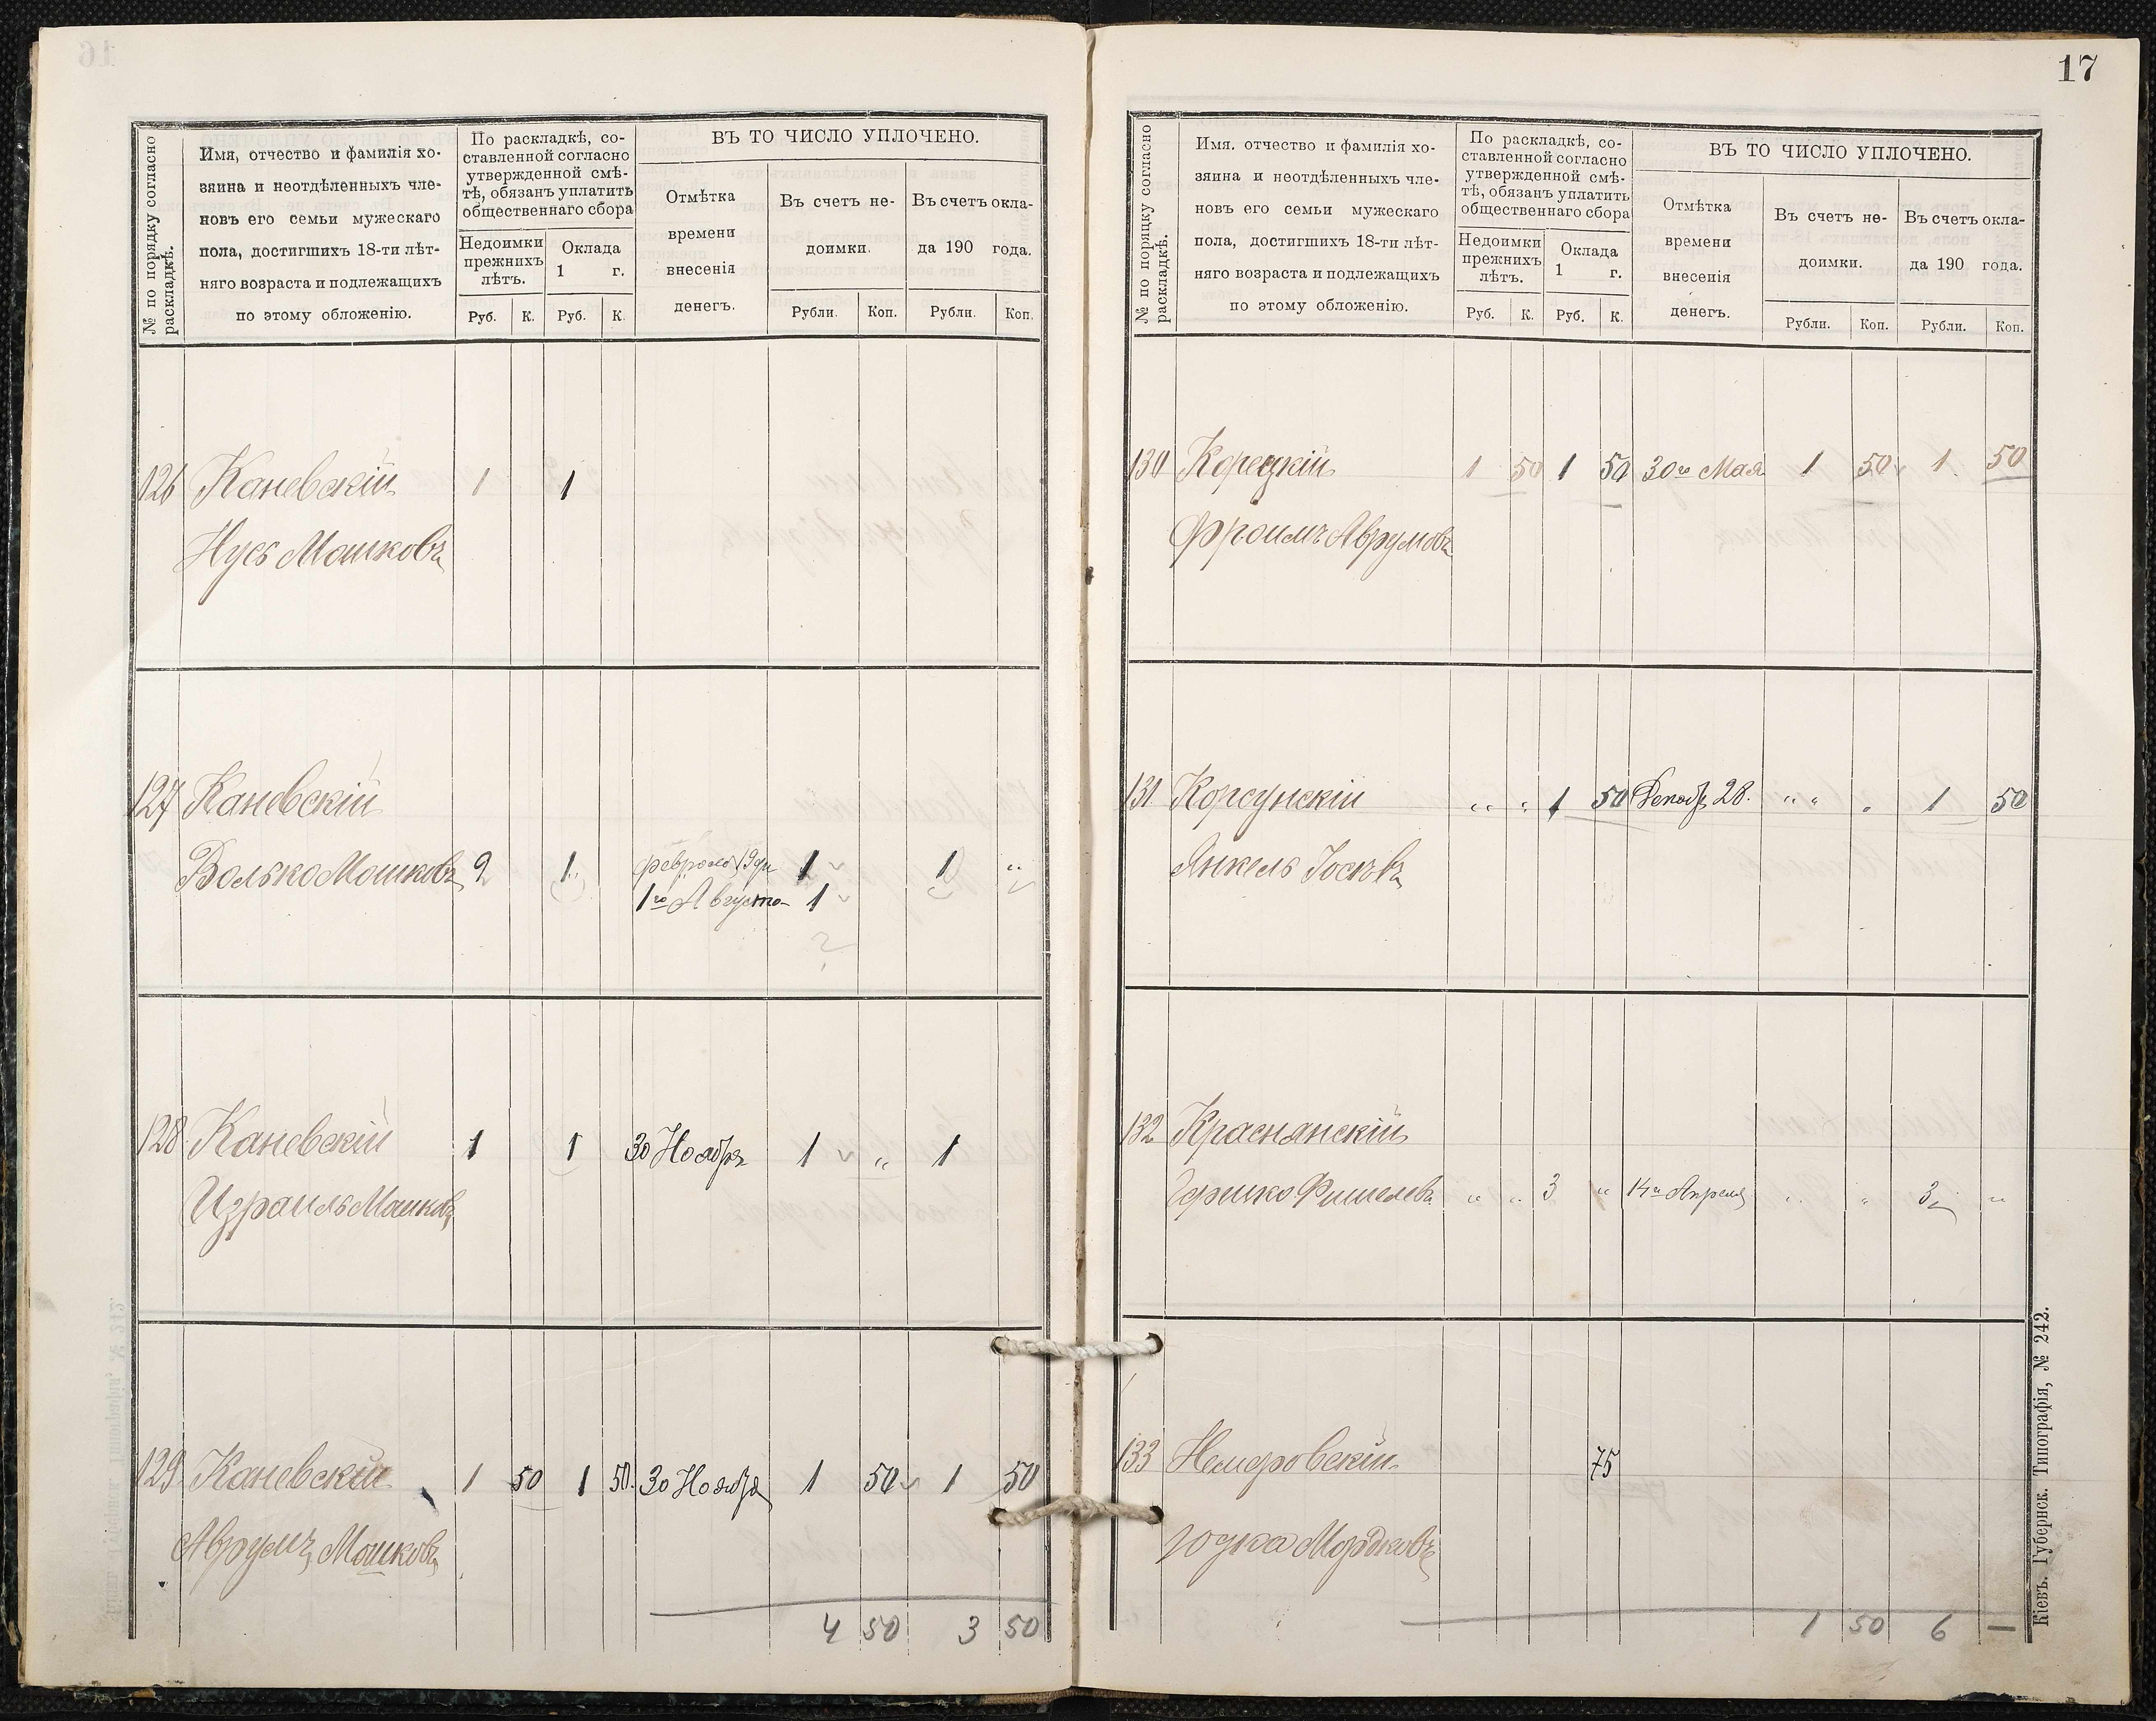 17
№ по порядку согласно раскладкѣ.
Имя, отчество и фамилія хо-
зяина и неотдѣленныхъ чле-
новъ его семьи мужескаго
пола, достигшихъ 18-ти лѣт-
няго возраста и подлежащихъ
по этому обложенію.
По раскладкѣ, со-
ставленной согласно
утвержденной смѣ-
тѣ, обязанъ уплатить
общественнаго сбора
Недоимки
прежнихъ
лѣтъ.
Оклада
1 г.
Руб. К. Руб. К.
ВЪ ТО ЧИСЛО УПЛОЧЕНО.
Отмѣтка
времени
внесенія
денегъ.
Въ счетъ не-
доимки.
Въ счетъ окла-
да 190 года.
Рубли. Коп. Рубли. Коп.
126 Каневскій 1 1
Нусь Мошковъ
127 Каневскій
Волько Мошковъ 9 1 февраля 19 дн 1 1 "
1го Августа 1
?
128 Каневскій 1 1 30 Ноября 1 " 1
Израиль Мошковъ
129 Каневскій 1 50 1 50. 30 Ноября 1 50 1 50
Аврумъ Мошковъ
4 50 3 50
№ по поряцку согласно раскладкѣ.
Имя. отчество и фамилія хо-
зяина и неотдѣленныхъ чле-
новъ его семьи мужескаго
пола, достигшихъ 18-ти лѣт-
няго возраста и подлежащихъ
по этому обложенію.
По раскладкѣ, со-
ставленной согласно
утвержденной смѣ-
тѣ, обязанъ уплатить
общественнаго сбора
Недоимки
прежнихъ
лѣтъ.
Оклада
1 г.
Руб. К. Руб. К.
ВЪ ТО ЧИСЛО УПЛОЧЕНО.
Отмѣтка
времени
внесенія
денегъ.
Въ счетъ не-
доимки.
Въ счетъ окла-
да 190 года.
Рубли. Коп. Рубли. Коп.
130 Корецкій 1 50 1 50 30го Мая 1 50 1. 50
Фроимъ Аврумовъ
131 Корсунскій " " 1 50 Декабр 28. " " 1 50
Янкель Іосьовъ
132 Краснянскій
Гершко Фишелевъ " " 3 " 14го Апреля " " 3 "
133 Немеровскій 75
Юдка Мордковъ
1 50 6 —
Кіевъ. Губернск. Типографія, № 242.